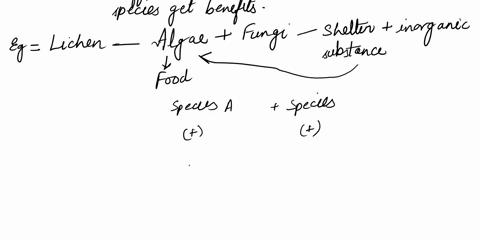 species get benefits.
Eg = Lichen — Algae + Fungi — Shelter + inorganic
substance
Food
Species A + Species
(+) (+)